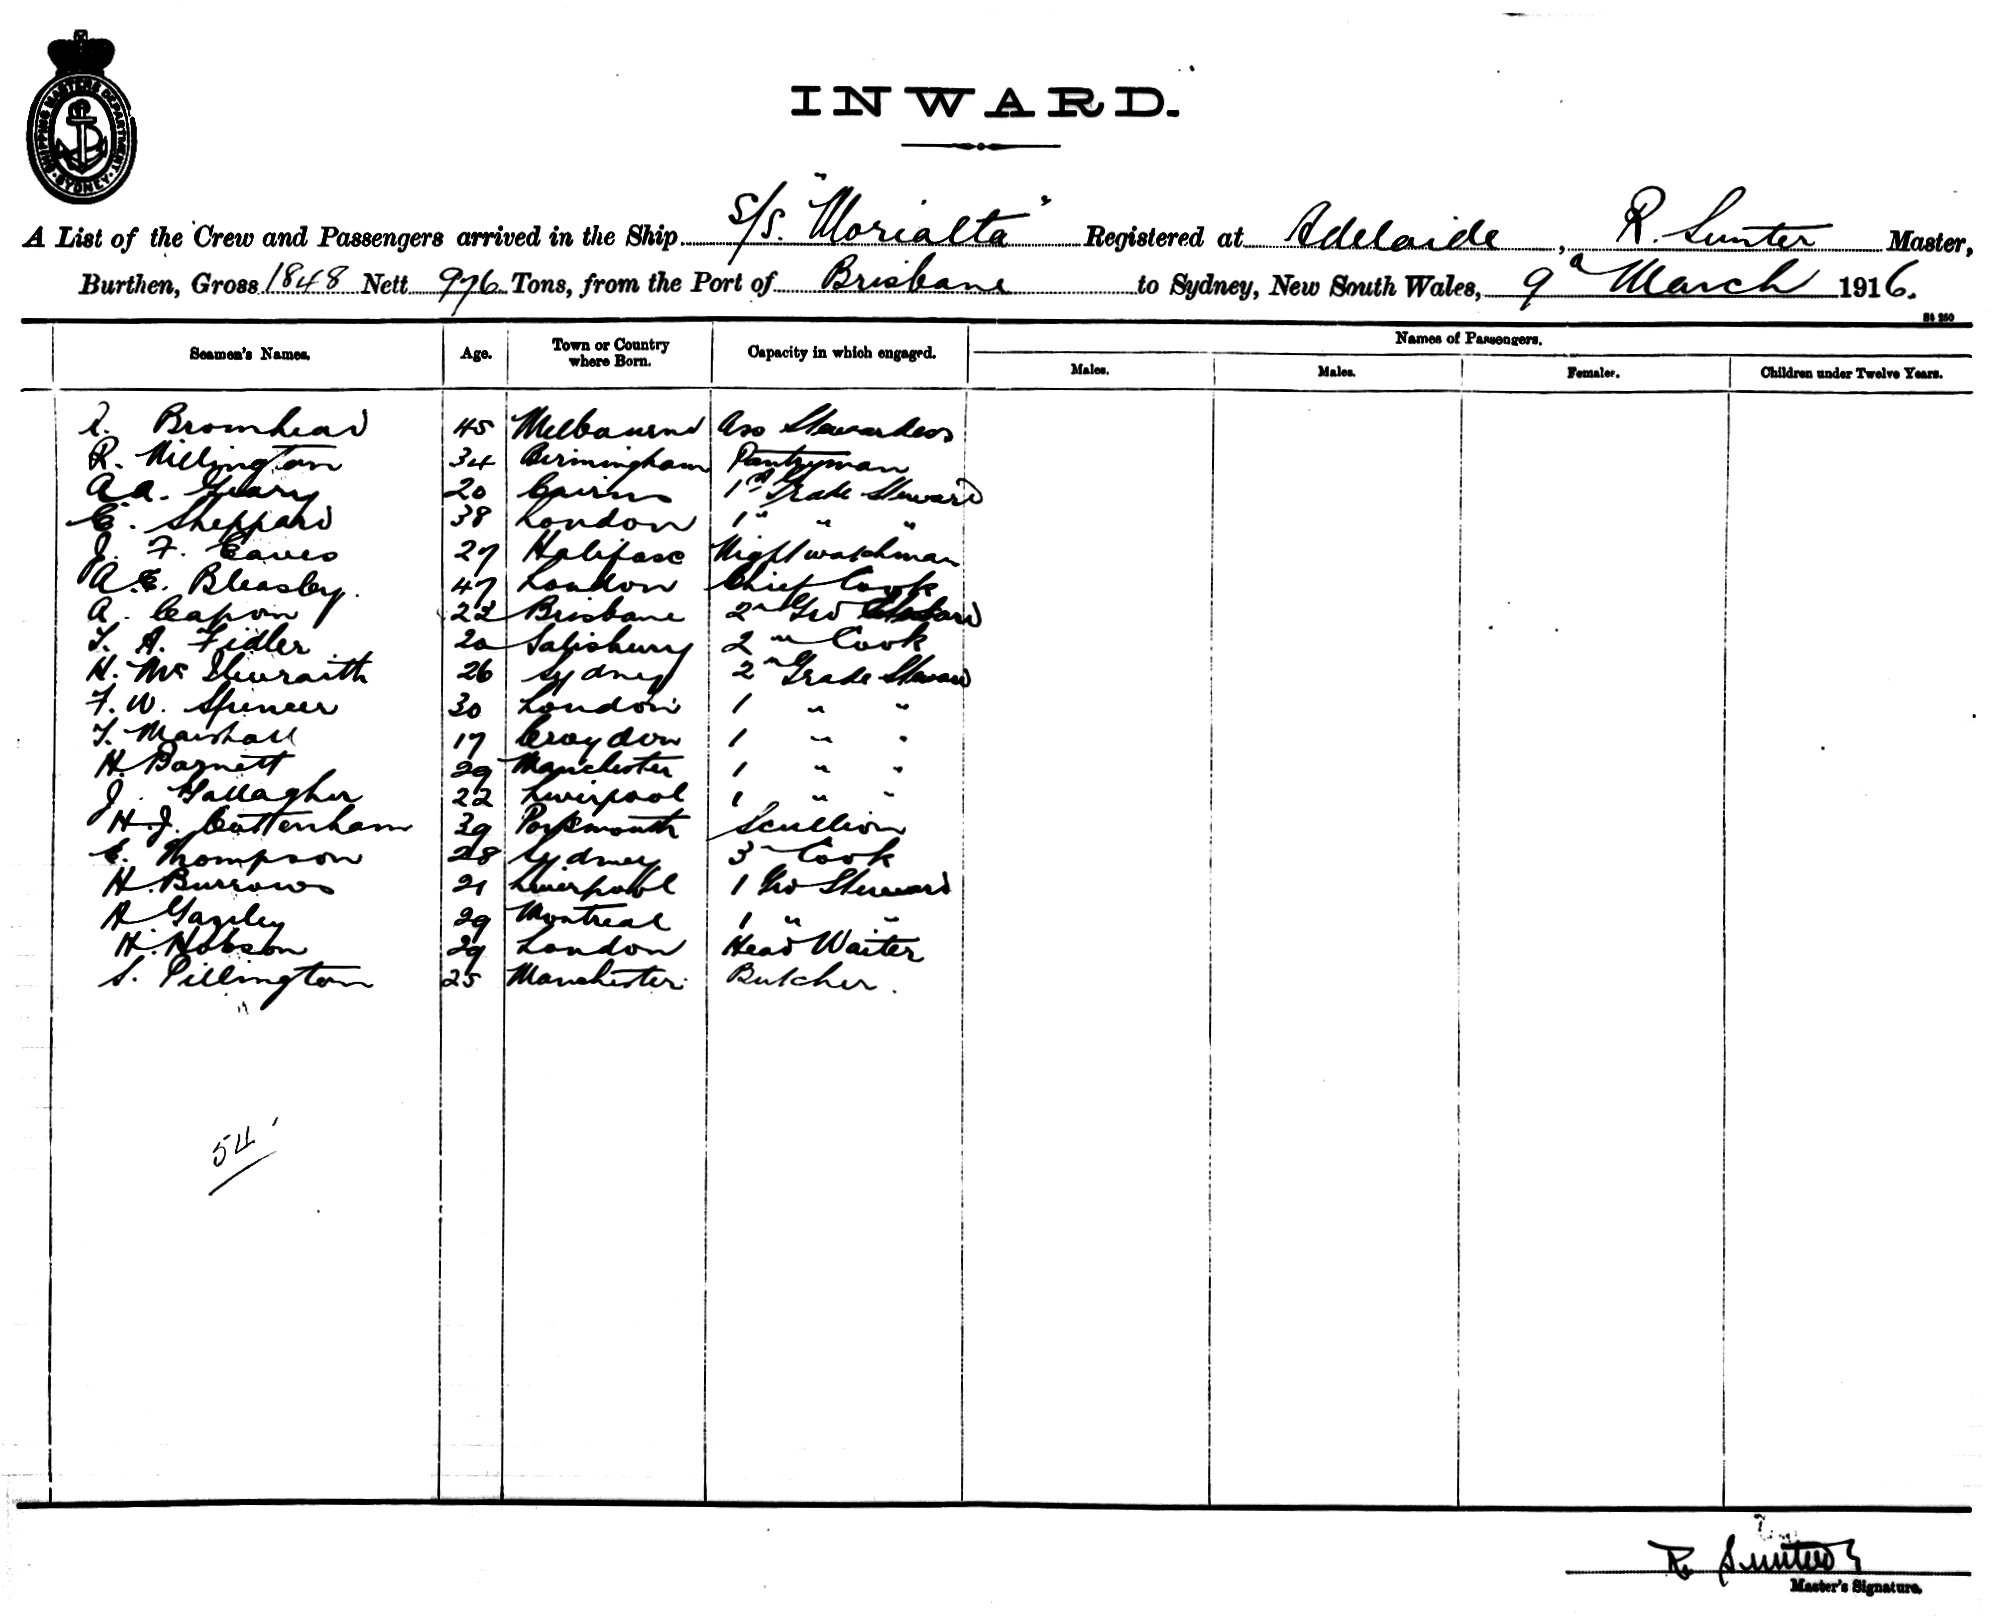 SHIPPING MASTERS DEPARTMENT
SYDNEY
INWARD.
A List of the Crew and Passengers arrived in the Ship S/S. "Morialta" Registered at Adelaide, R. Sunter Master,
Burthen, Gross 1848 Nett 976 Tons, from the Port of Brisbane to Sydney, New South Wales, 9 March 1916.
St 250
Seamen's Names. Age. Town or Country where Born. Capacity in which engaged. Names of Passengers.
Males. Males. Females. Children under Twelve Years.
Bromhead 45 Melbourne Ass Stewardess
R. Millington 34 Birmingham Pantryman
A.A. Geary 20 Cairns 1st Grade Steward
E. Sheppard 38 London 1 " " "
J. F. Eaves 27 Halifax Nightwatchman
A.E. Bleasby. 47 London Chief Cook
A. Capon 22 Brisbane 2n Grd Steward
T. A. Fidler 20 Salisbury 2n Cook
H. McIlwraith 26 Sydney 2n Grade Steward
F. W. Spencer 30 London 1 " "
T. Marshall 17 Croydon 1 " "
H. Barnett 29 Manchester 1 " "
J. Gallagher 22 Liverpool 1 " "
H. J. Cottenham 39 Portsmouth Scullion
E. Thompson 28 Sydney 3 Cook
H. Burrows 21 Liverpool 1 Grd Steward
A Gazley 29 Montreal 1 " "
H. Hobson 29 London Head Waiter
S. Pillington 25 Manchester. Butcher.
54
R. Sunter
Master's Signature.